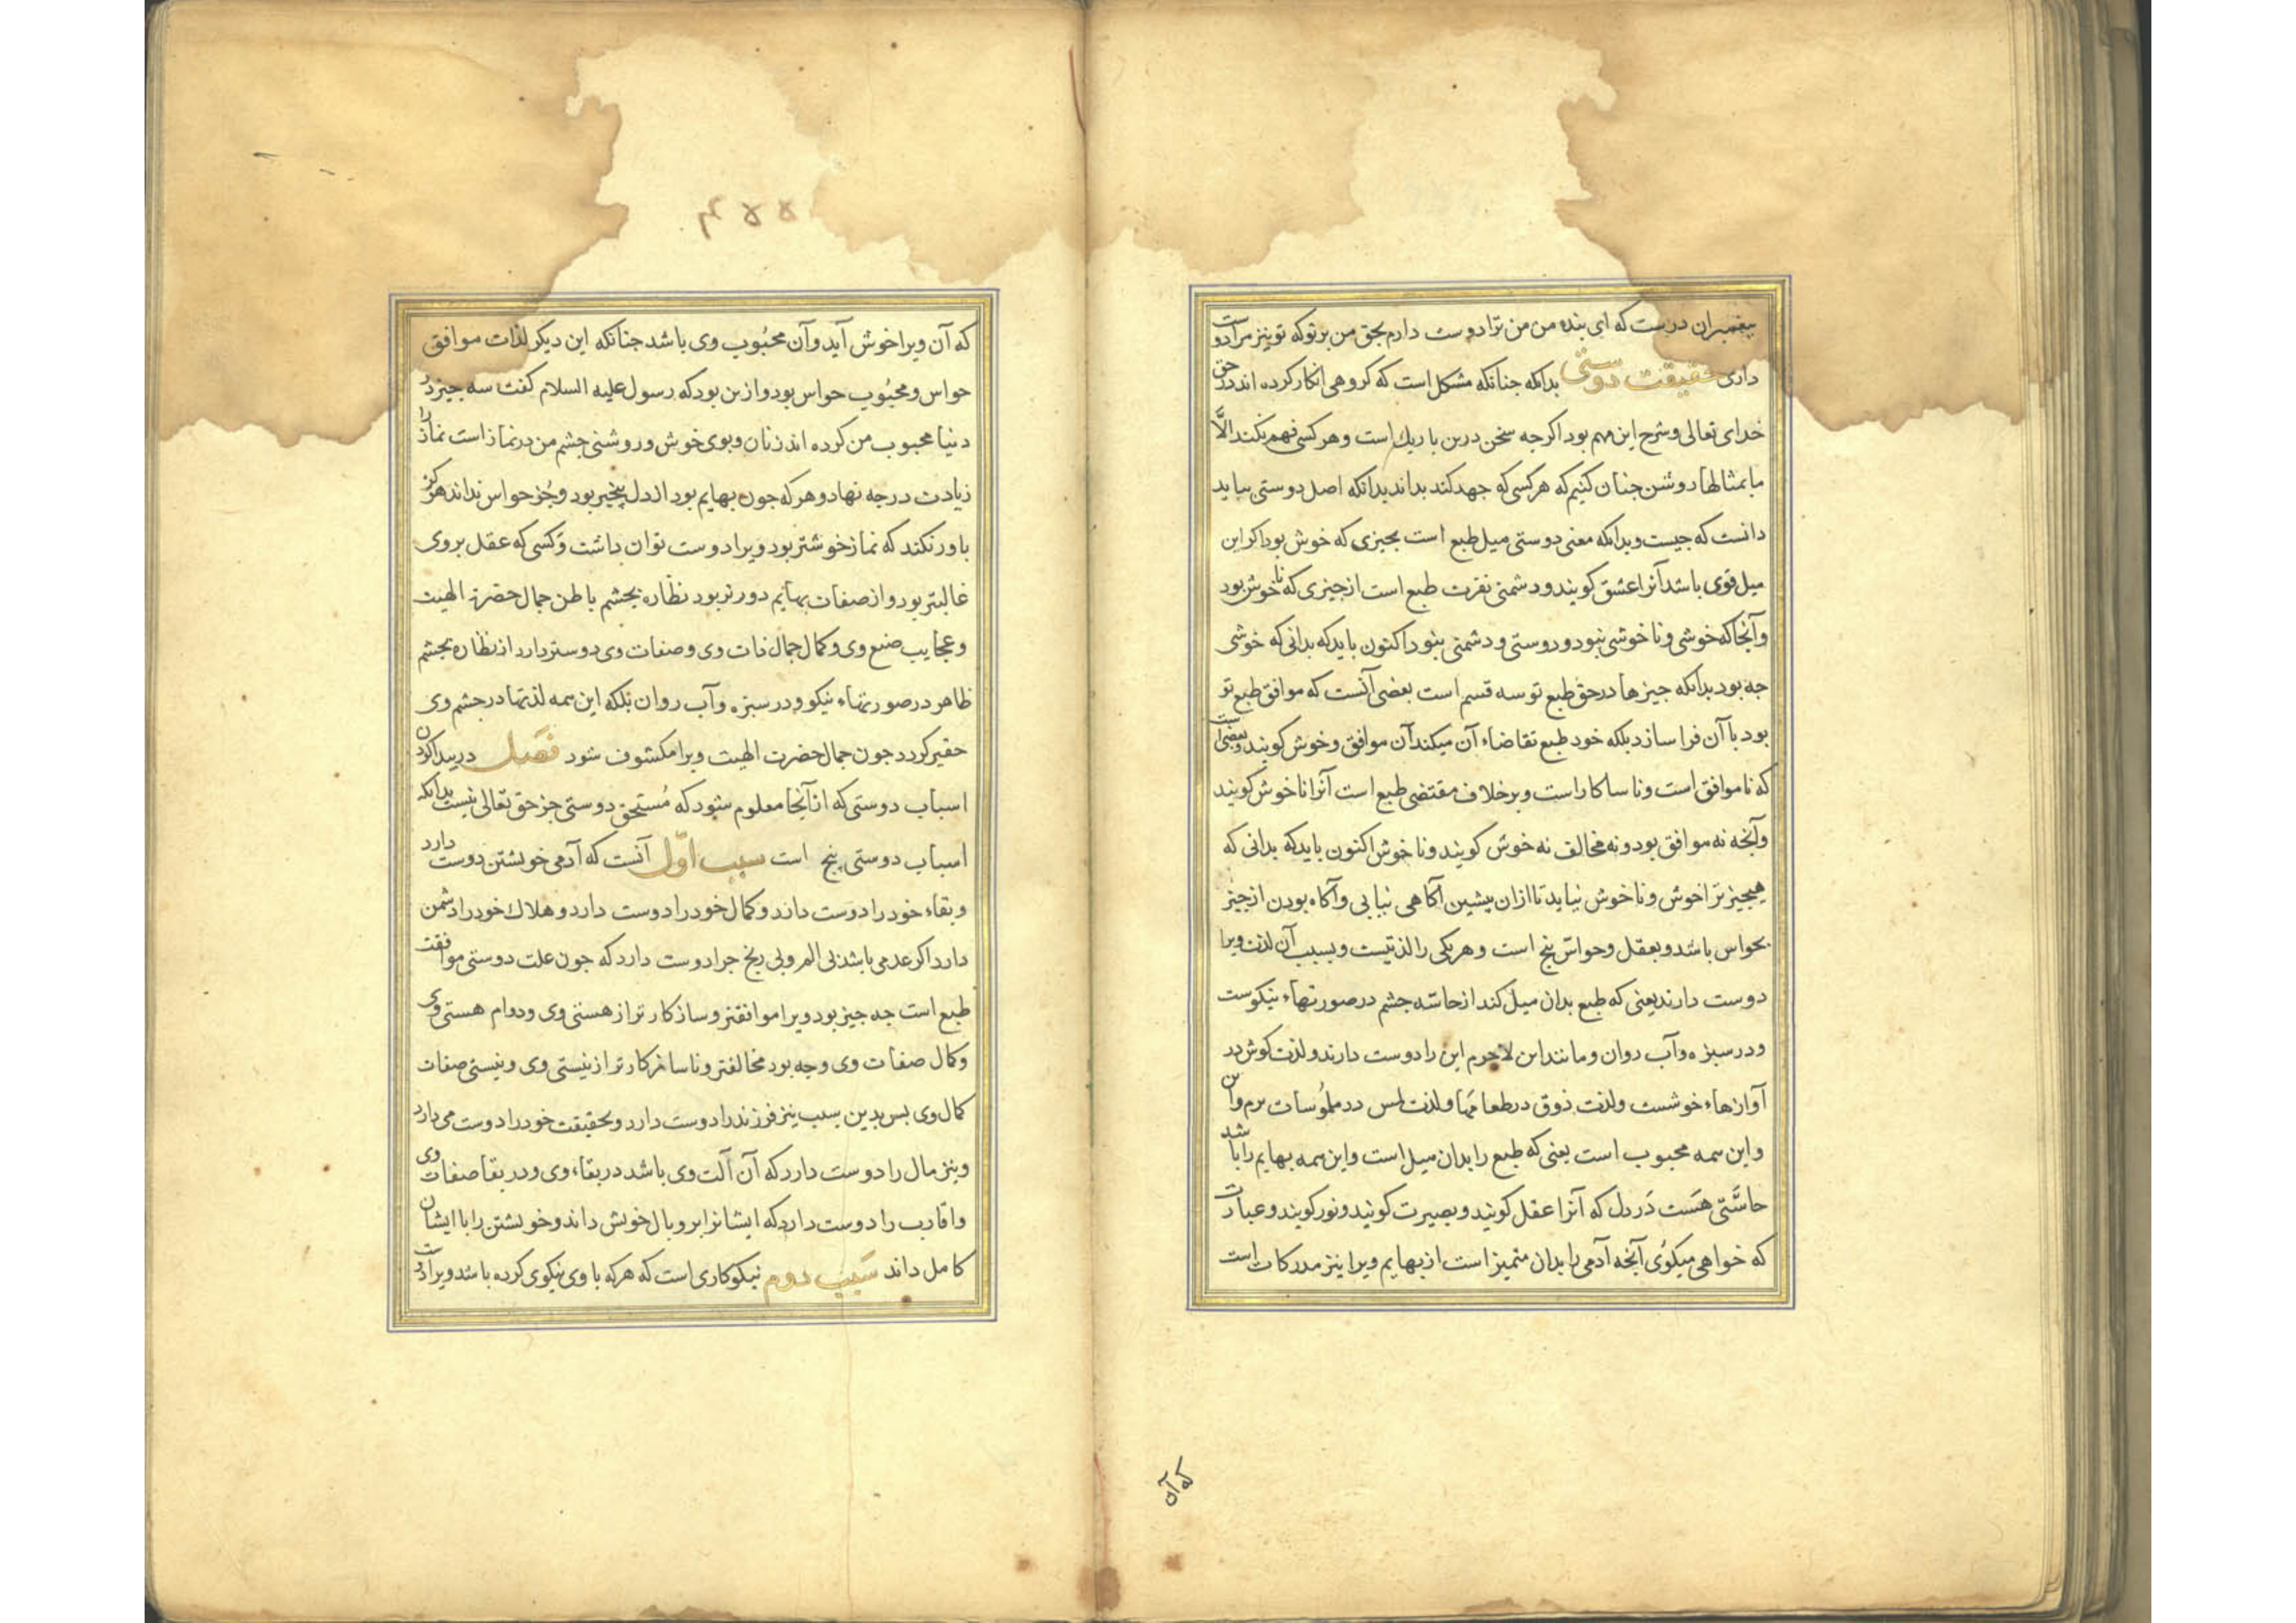 پیغمبران درست که ای بنده من من ترا دوست دارم بحق من بر تو که تو نیز مرا دوست
داری حقیقت دوستی بدانکه جنانکه مشکل است که کروهی انکار کرده اند در حق
خدای تعالی و شرح این مهم بود اکرجه سخن درین باریك است و هر کسی فهم نکند الّا
ما بمثالها روشن جنان کنیم که هر کسی که جهد کند بداند بدانکه اصل دوستی بباید
دانست که جیست و بدانکه معنی دوستی میل طبع است بجیزی که خوش بود اکر این
میل قوی باشد آنرا عشق کویند و دشمنی نفرت طبع است از جیزی که ناخوش بود
و آنجا که خوشی و ناخوشی نبود و دوستی و دشمنی نبود اکنون باید که بدانی که خوشی
جه بود بدانکه جیزها در حق طبع تو سه قسم است بعضی آنست که موافق طبع تو
بود با آن فرا سازد بلکه خود طبع تقاضاء آن میکند آن موافق و خوش کویند و بعضی آنست
که ناموافق است و ناسازکار است و بر خلاف مقتضی طبع است آنرا ناخوش کویند
و آنجه نه موافق بود و نه مخالف نه خوش کویند و ناخوش اکنون باید که بدانی که
هیجیز ترا خوش و ناخوش نیاید تا ازان پیشین آکاهی نیابی و آکاه بودن از جیز
بحواس باشد و بعقل و حواس پنج است و هر یکی را لذتیست و بسبب آن لذت ویرا
دوست دارند یعنی که طبع بدان میل کند از حاسّه جشم در صورتهاء نیکوست
و در سبزه و آب روان و مانند این لاجرم این را دوست دارند و لذت کوش در
آوازهاء خوشست ولذت ذوق در طعامها و لذت لمس در ملموسات نرم و این
و این همه محبوب است یعنی که طبع را بدان میل است و این همه بهایم را باشد
حاسّتی هست در دل که آنرا عقل کویند و بصیرت کویند و نور کویند و عبارت
که خواهی میکوی آنجه آدمی را بدان متمیز است از بهایم ویرا نیز مدرکات است
که آن
۴۵۵
که آن ویرا خوش آید و آن محبوب وی باشد جنانکه این دیکر لذات موافق
حواس و محبوب حواس بود و ازین بود که رسول علیه السلام کفت سه جیز در
دنیا محبوب من کرده اند زنان و بوی خوش و روشنی جشم من در نماز است نماز را
زیادت درجه نهاد و هر که جون بهایم بود از دل بیخبر بود و جز حواس نداند هرکز
باور نکند که نماز خوشتر بود ویرا دوست توان داشت و کسی که عقل بر وی
غالبتر بود و از صفات بهایم دورتر بود نظاره بجشم باطن جمال حضرت الهیت
و عجایب صنع وی و کمال جمال ذات وی و صفات وی دوستر دارد از نظاره بجشم
ظاهر در صورتهاء نیکو و در سبزه و آب روان بلکه این همه لذتها در جشم وی
حقیر کردد جون جمال حضرت الهیت ویرا مکشوف شود فصل در پیدا کردن
اسباب دوستی که از آنجا معلوم شود که مستحق دوستی جز حق تعالی نیست بدانکه
اسباب دوستی پنج است سبب اوّل آنست که آدمی خویشتن دوست دارد
و بقاء خود را دوست داند و کمال خود را دوست دارد و هلاك خود را دشمن
دارد اکر عدمی باشد بی الم و بی رنج جرا دوست دارد که جون علت دوستی موافقت
طبع است جه جیز بود ویرا موافقتر و سازکارتر از هستی وی و دوام هستی وی
و کمال صفات وی و جه بود مخالفتر و ناسازکارتر از نیستی وی و نیستی صفات
کمال وی بس بدین سبب نیز فرزند را دوست دارد و بحقیقت خود را دوست می دارد
و نیز مال را دوست دارد که آن آلت وی باشد در بقاء وی و در بقا صفات وی
و اقارب را دوست دارد که ایشانرا بر و بال خویش داند و خویشتن را با ایشان
کامل داند سبب دوم نیکوکاری است که هر که با وی نیکوی کرده باشد ویرا دوست